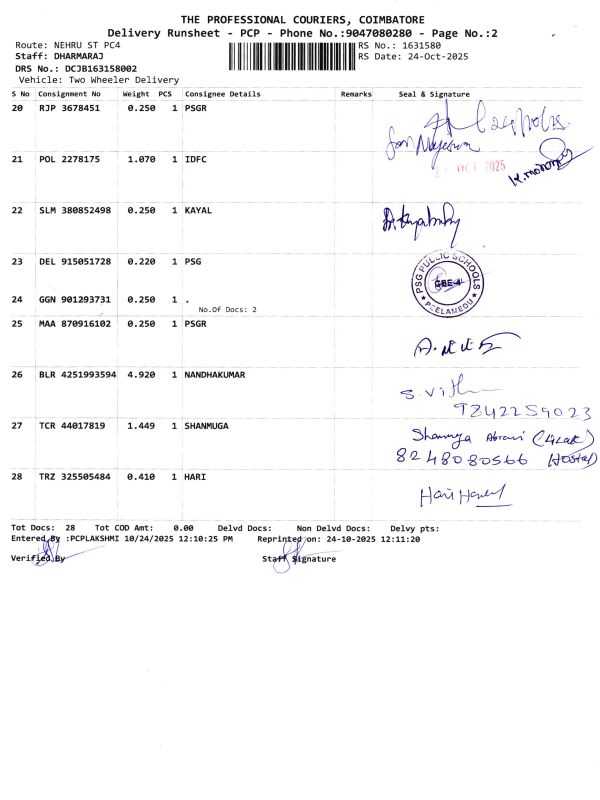 THE PROFESSIONAL COURIERS, COIMBATORE
Delivery Runsheet - PCP - Phone No.:9047080280 - Page No.:2
Route: NEHRU ST PC4 RS No.: 1631580
Staff: DHARMARAJ RS Date: 24-Oct-2025
DRS No.: DCJB163158002
Vehicle: Two Wheeler Delivery
S No Consignment No Weight PCS Consignee Details Remarks Seal & Signature
20 RJP 3678451 0.250 1 PSGR
21 POL 2278175 1.070 1 IDFC
OCT 2025
22 SLM 380852498 0.250 1 KAYAL
23 DEL 915051728 0.220 1 PSG
PSG PUBLIC SCHOOLS
PEELAMEDU
24 GGN 901293731 0.250 1 .
No.Of Docs: 2
25 MAA 870916102 0.250 1 PSGR
26 BLR 4251993594 4.920 1 NANDHAKUMAR
27 TCR 44017819 1.449 1 SHANMUGA
Shanmuga
8248080566
28 TRZ 325505484 0.410 1 HARI
Hari
Tot Docs: 28 Tot COD Amt: 0.00 Delvd Docs: Non Delvd Docs: Delvy pts:
Entered By :PCPLAKSHMI 10/24/2025 12:10:25 PM Reprinted on: 24-10-2025 12:11:20
Verified By Staff Signature